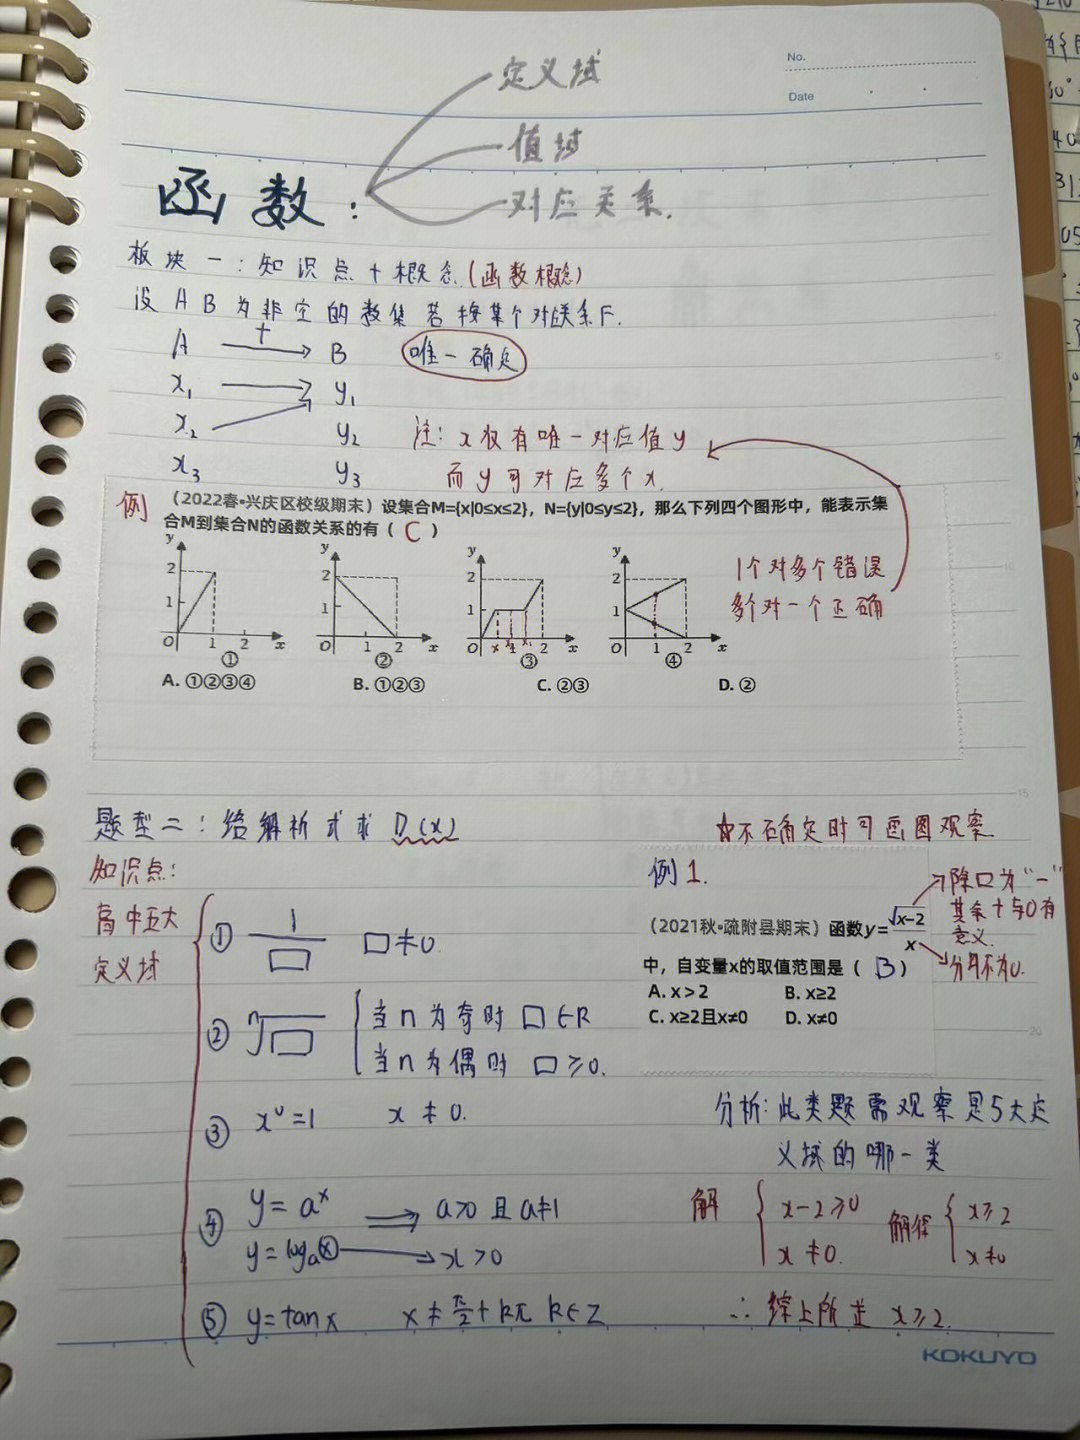 No.
Date
定义域
值域
对应关系.
函数:
板块一:知识点+概念(函数概念)
设AB为非空的数集若按某个对应关系F.
A f B 唯一确定
x₁ y₁
x₂ y₂ 注: x仅有唯一对应值y
x₃ y₃ 而y可对应多个x.
例 (2022春•兴庆区校级期末) 设集合M={x|0≤x≤2}, N={y|0≤y≤2}, 那么下列四个图形中, 能表示集
合M到集合N的函数关系的有 ( C )
y 2 1 O 1 2 x ①
y 2 1 O 1 2 x ②
y 2 1 O x x₂ x₁ 2 x ③
y 2 1 O 1 2 x ④
1个对多个错误
多个对一个正确
A. ①②③④ B. ①②③ C. ②③ D. ②
题型二:给解析式求D(x)
☆不确定时可画图观察
知识点:
高中五大
定义域
① 1/□ □≠0.
② ⁿ√□ 当n为奇时 □∈R
当n为偶时 □≥0.
③ x⁰=1 x≠0.
④ y=aˣ ⟹ a>0且a≠1
y=logₐx → x>0
⑤ y=tanx x≠π/2+kπ k∈Z
例1.
(2021秋•疏附县期末) 函数y=√x-2/x
中, 自变量x的取值范围是 ( B )
A. x>2 B. x≥2
C. x≥2且x≠0 D. x≠0
除□为"-"
其余+与0有
意义.
分母不为0.
分析:此类题需观察是5大定
义域的哪一类
解 { x-2≥0 解得 { x≥2
x≠0. x≠0
∴综上所述 x≥2.
KOKUYO